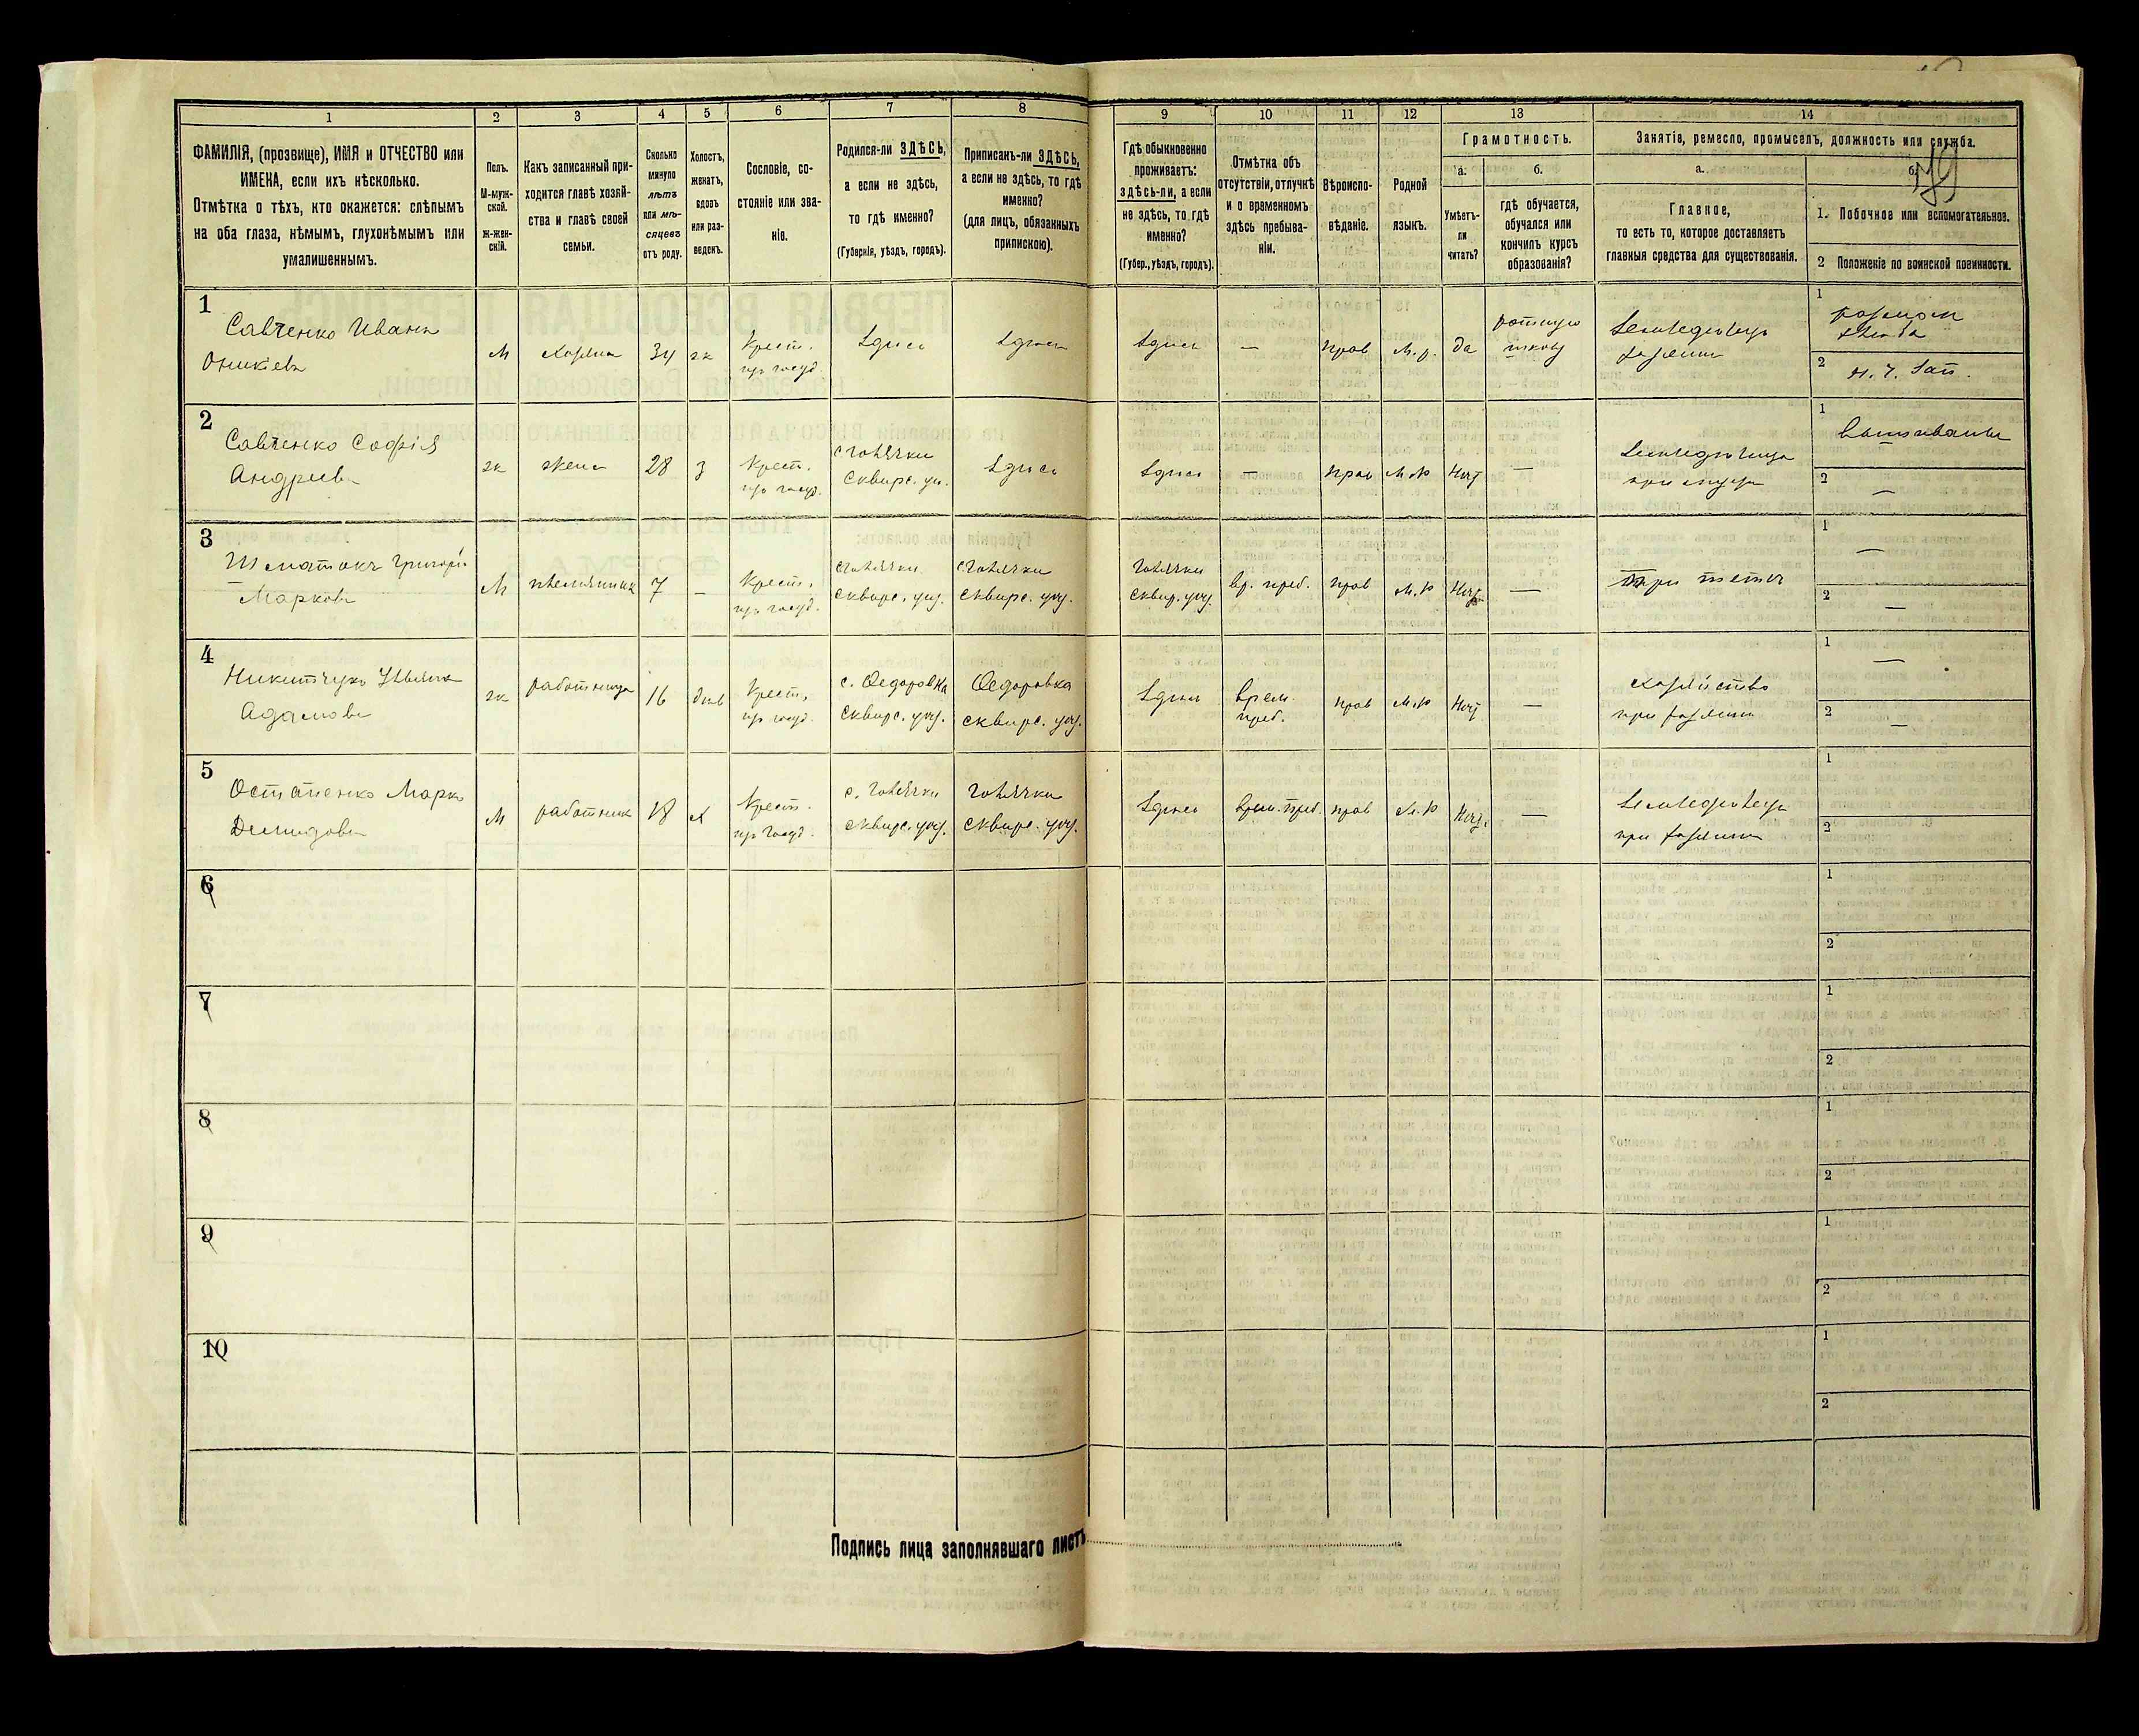 1 2 3 4 5 6 7 8 9 10 11 12 13 14
ФАМИЛІЯ, (прозвище), ИМЯ и ОТЧЕСТВО или
ИМЕНА, если ихъ нѣсколько.
Отмѣтка о тѣхъ, кто окажется: слѣпымъ
на оба глаза, нѣмымъ, глухонѣмымъ или
умалишеннымъ.
Полъ.
М-муж-
ской.
ж-жен-
скій.
Какъ записанный при-
ходится главѣ хозяй-
ства и главѣ своей
семьи.
Сколько
минуло
лѣтъ
или мѣ-
сяцевъ
отъ роду.
Холостъ,
женатъ,
вдовъ
или раз-
веденъ.
Сословіе, со-
стояніе или зва-
ніе.
Родился-ли ЗДѢСЬ,
а если не здѣсь,
то гдѣ именно?
(Губернія, уѣздъ, городъ).
Приписанъ-ли ЗДѢСЬ,
а если не здѣсь, то гдѣ
именно?
(для лицъ, обязанныхъ
припискою).
Гдѣ обыкновенно
проживаетъ:
здѣсь-ли, а если
не здѣсь, то гдѣ
именно?
(Губер., уѣздъ, городъ).
Отмѣтка объ
отсутствіи, отлучкѣ
и о временномъ
здѣсь пребыва-
ніи.
Вѣроиспо-
вѣданіе.
Родной
языкъ.
Грамотность.
а.
Умѣетъ-
ли
читать?
б.
гдѣ обучается,
обучался или
кончилъ курсъ
образованія?
Занятіе, ремесло, промыселъ, должность или служба.
а.
Главное,
то есть то, которое доставляетъ
главныя средства для существованія.
б.
79
1. Побочное или вспомогательное.
2 Положеніе по воинской повинности.
1
Савченко Иванъ
Оникіевъ
М
хозяинъ
34
ж
Крест.
изъ госуд.
здѣсь
здѣсь
здѣсь
—
прав
М.р.
да
ротную
школу
Земледѣлецъ
хозяинъ
1
2
2
Савченко Софія
Андреева
ж
жена
28
з
Крест.
изъ госуд.
Сквирс. у.
здѣсь
здѣсь
—
прав
М.р
Нѣтъ
—
при мужѣ
1
2 —
3
Григорій
Марковъ
М
племянник
7
—
Крест.
изъ госуд.
Сквирс. уѣз.
Сквирс. уѣз.
Сквир. уѣз.
вр. преб.
прав
М.р
Нѣтъ
—
При тетѣ
1 —
2 —
4
Никитчукъ Ульяна
Адамова
ж
работница
16
дѣв
Крест.
изъ госуд.
с. Ѳедоровка
Сквирс. уѣз.
Ѳедоровка
Сквирс. уѣз.
здѣсь
врем.
преб.
прав
М.р
Нѣтъ
—
хозяйство
при хозяинѣ
1 —
2 —
5
Остапенко Марко
Демидовъ
М
работник
18
х
Крест.
изъ госуд.
Сквирс. уѣз.
Сквирс. уѣз.
здѣсь
врем. преб.
прав
М.р
Нѣтъ
—
Земледѣлецъ
при хозяинѣ
1
2
6
1
2
7
1
2
8
1
2
9
1
2
10
1
2
Подпись лица заполнявшаго листъ